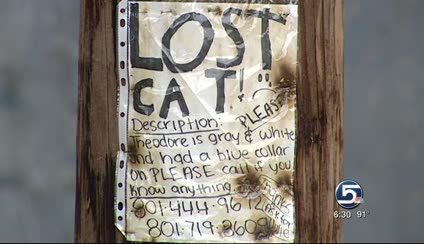 LOST
CAT!
PLEASE
Description:
Theodore is gray & white
and had a blue collar
on PLEASE call if you
know anything.
801-444-9672
801-719-3609
5
6:30 91°